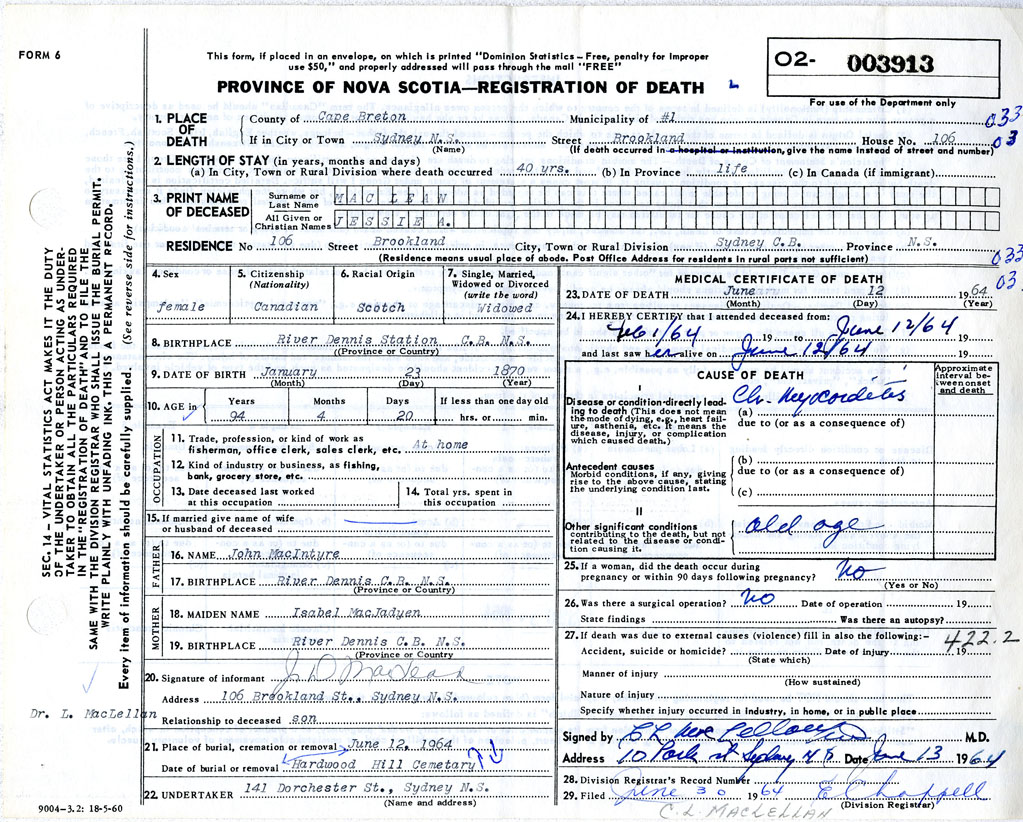 FORM 6
This form, if placed in an envelope, on which is printed "Dominion Statistics – Free, penalty for improper
use $50," and properly addressed will pass through the mail "FREE"
PROVINCE OF NOVA SCOTIA—REGISTRATION OF DEATH
O2- 003913
For use of the Department only
1. PLACE OF DEATH
County of Cape Breton Municipality of #1 033
If in City or Town Sydney N.S. Street Brookland House No. 106 03
(Name) (If death in a hospital or institution, give the name instead of street and number)
2. LENGTH OF STAY (in years, months and days)
(a) In City, Town or Rural Division where death occurred 40 yrs. (b) In Province life (c) In Canada (if immigrant)
3. PRINT NAME OF DECEASED
Surname or Last Name MACLEAN
All Given or Christian Names JESSIE A.
RESIDENCE No 106 Street Brookland City, Town or Rural Division Sydney C.B. Province N.S.
(Residence means usual place of abode. Post Office Address for residents in rural parts not sufficient) 033
03
4. Sex
female
5. Citizenship
(Nationality)
Canadian
6. Racial Origin
Scotch
7. Single, Married,
Widowed or Divorced
(write the word)
Widowed
8. BIRTHPLACE River Dennis Station C.B. N.S.
(Province or Country)
9. DATE OF BIRTH January 23 1870
(Month) (Day) (Year)
10. AGE in Years Months Days If less than one day old
94 4 20 hrs. or min.
OCCUPATION
11. Trade, profession, or kind of work as
fisherman, office clerk, sales clerk, etc. At home
12. Kind of industry or business, as fishing,
bank, grocery store, etc.
13. Date deceased last worked
at this occupation
14. Total yrs. spent in
this occupation
15. If married give name of wife
or husband of deceased
FATHER
16. NAME John MacIntyre
17. BIRTHPLACE River Dennis C.B. N.S.
(Province or Country)
MOTHER
18. MAIDEN NAME Isabel MacJadyen
19. BIRTHPLACE River Dennis C.B. N.S.
(Province or Country
20. Signature of informant J. D. MacLean
Address 106 Brookland St., Sydney N.S.
Relationship to deceased son
21. Place of burial, cremation or removal June 12, 1964
Date of burial or removal Hardwood Hill Cemetary
22. UNDERTAKER 141 Dorchester St., Sydney N.S.
(Name and address)
MEDICAL CERTIFICATE OF DEATH
23. DATE OF DEATH June 12 1964
(Month) (Day) (Year)
24. I HEREBY CERTIFY that I attended deceased from:
Feb 1/64 19 to June 12/64 19
and last saw her alive on June 12/64 19
CAUSE OF DEATH
Approximate
interval be-
tween onset
and death
I
Disease or condition directly lead-
ing to death (This does not mean
the mode of dying, e.g., heart fail-
ure, asthenia, etc. It means the
disease, injury, or complication
which caused death.)
(a) Ch. Myocarditis
due to (or as a consequence of)
Antecedent causes
Morbid conditions, if any, giving
rise to the above cause, stating
the underlying condition last.
(b)
due to (or as a consequence of)
(c)
II
Other significant conditions
contributing to the death, but not
related to the disease or condi-
tion causing it.
old age
25. If a woman, did the death occur during
pregnancy or within 90 days following pregnancy? No
(Yes or No)
26. Was there a surgical operation? No Date of operation 19
State findings Was there an autopsy?
27. If death was due to external causes (violence) fill in also the following:– 422.2
Accident, suicide or homicide? Date of injury 19
(State which)
Manner of injury
(How sustained)
Nature of injury
Specify whether injury occurred in industry, in home, or in public place
Signed by M.D.
Address 10 Park st Sydney N S Date June 13 1964
28. Division Registrar's Record Number
29. Filed June 30 1964 E Chappell
(Division Registrar)
C. L. MACLELLAN
SEC. 14 – VITAL STATISTICS ACT MAKES IT THE DUTY
OF THE UNDERTAKER OR PERSON ACTING AS UNDER-
TAKER TO OBTAIN ALL THE PARTICULARS REQUIRED
IN THE "REGISTRATION OF DEATH" AND TO FILE THE
SAME WITH THE DIVISION REGISTRAR WHO SHALL ISSUE THE BURIAL PERMIT.
WRITE PLAINLY WITH UNFADING INK. THIS IS A PERMANENT RECORD.
Every item of information should be carefully supplied. (See reverse side for instructions.)
Dr. L. MacLellan
9004–3.2: 18-5-60